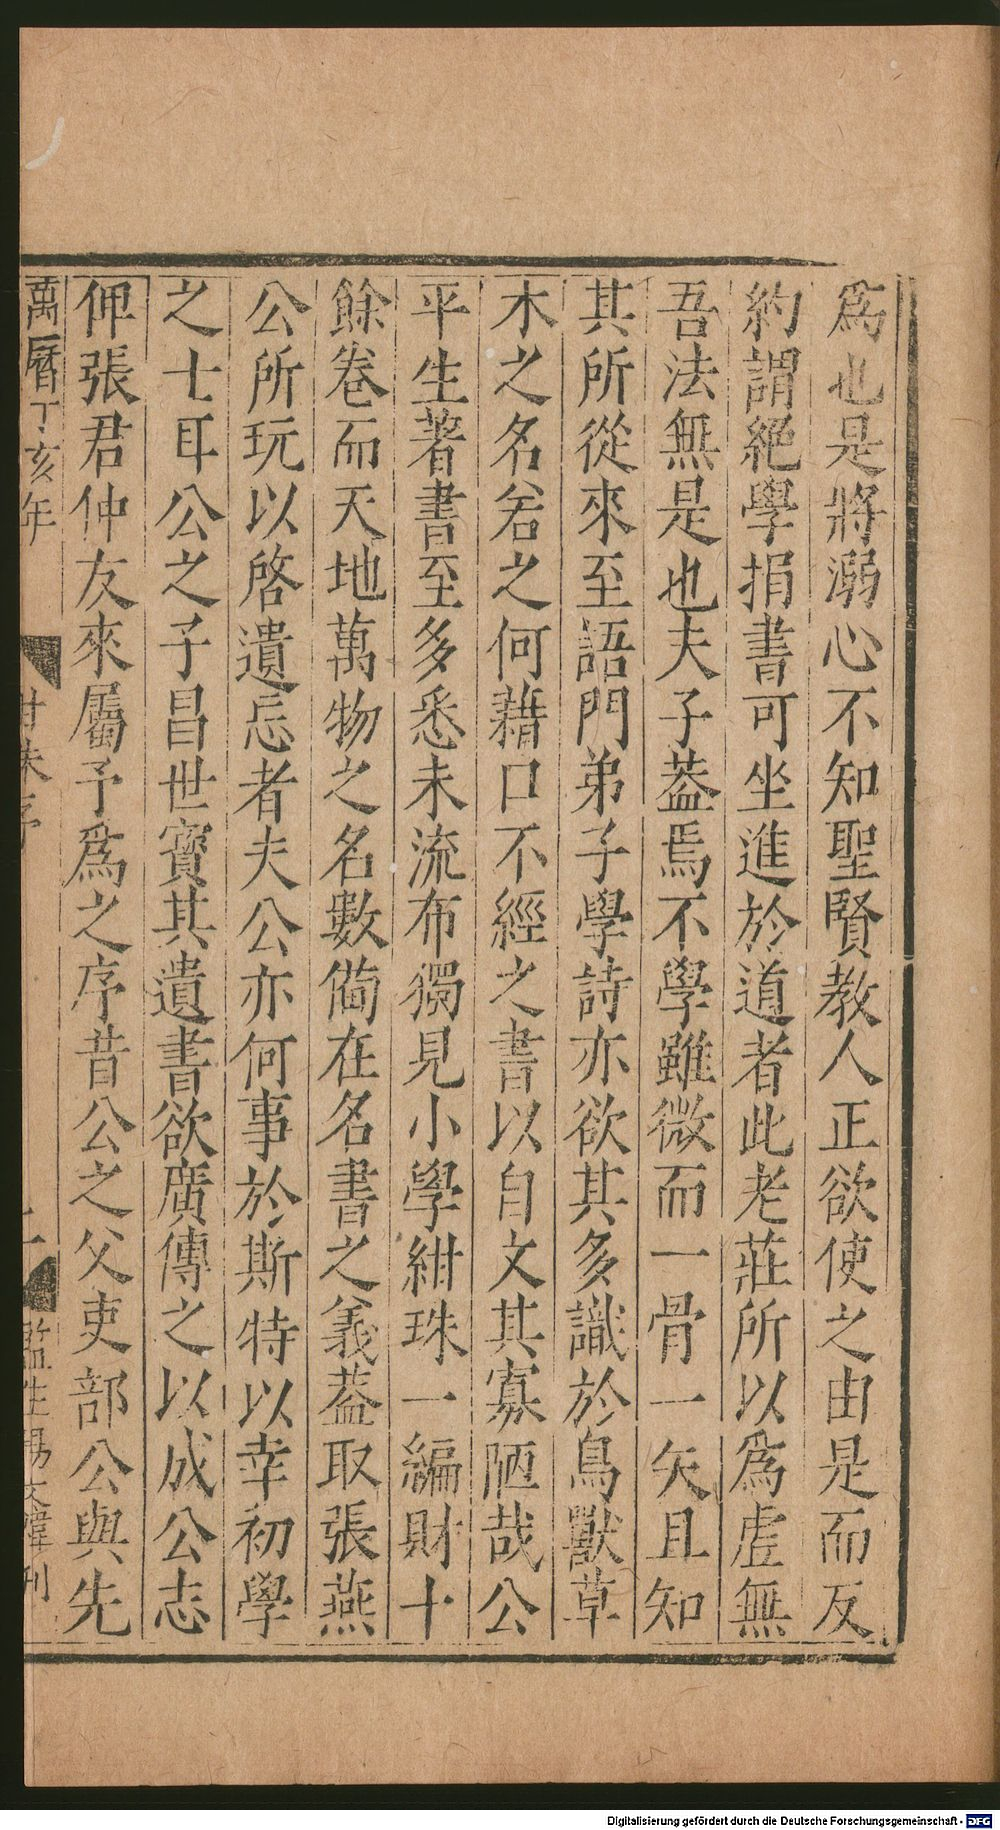 爲也是將溺心不知聖賢教人正欲使之由是而反
約謂絕學捐書可坐進於道者此老莊所以爲虛無
吾法無是也夫子葢焉不學雖微而一骨一矢且知
其所從來至語門弟子學詩亦欲其多識於鳥獸草
木之名若之何藉口不經之書以自文其寡陋哉公
平生著書至多悉未流布獨見小學紺珠一編財十
餘卷而天地萬物之名數僃在名書之義葢取張燕
公所玩以啓遺忘者夫公亦何事於斯特以幸初學
之士耳公之子昌世寶其遺書欲廣傳之以成公志
俾張君仲友來屬予爲之序昔公之父吏部公與先
萬曆丁亥年
紺珠序
監生楊文煒刊
Digitalisierung gefördert durch die Deutsche Forschungsgemeinschaft - DFG